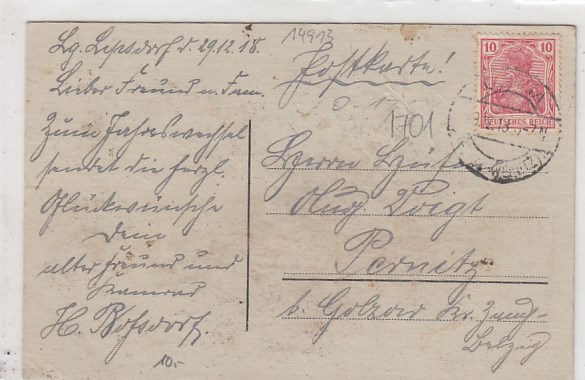 14913
Postkarte!
Lg. Lipsdorf d. 29.12.18.
Lieber Freund u. Fam.
Zum Jahreswechsel
sendet die herzl.
Glückwünsche
Dein
alter Freund und
Kamerad
H. Boßdorf
10.-
1701
Herrn
Aug. Voigt
Pernitz
b. Golzow Kr. Zauch-
Belzig
10 10
DEUTSCHES REICH